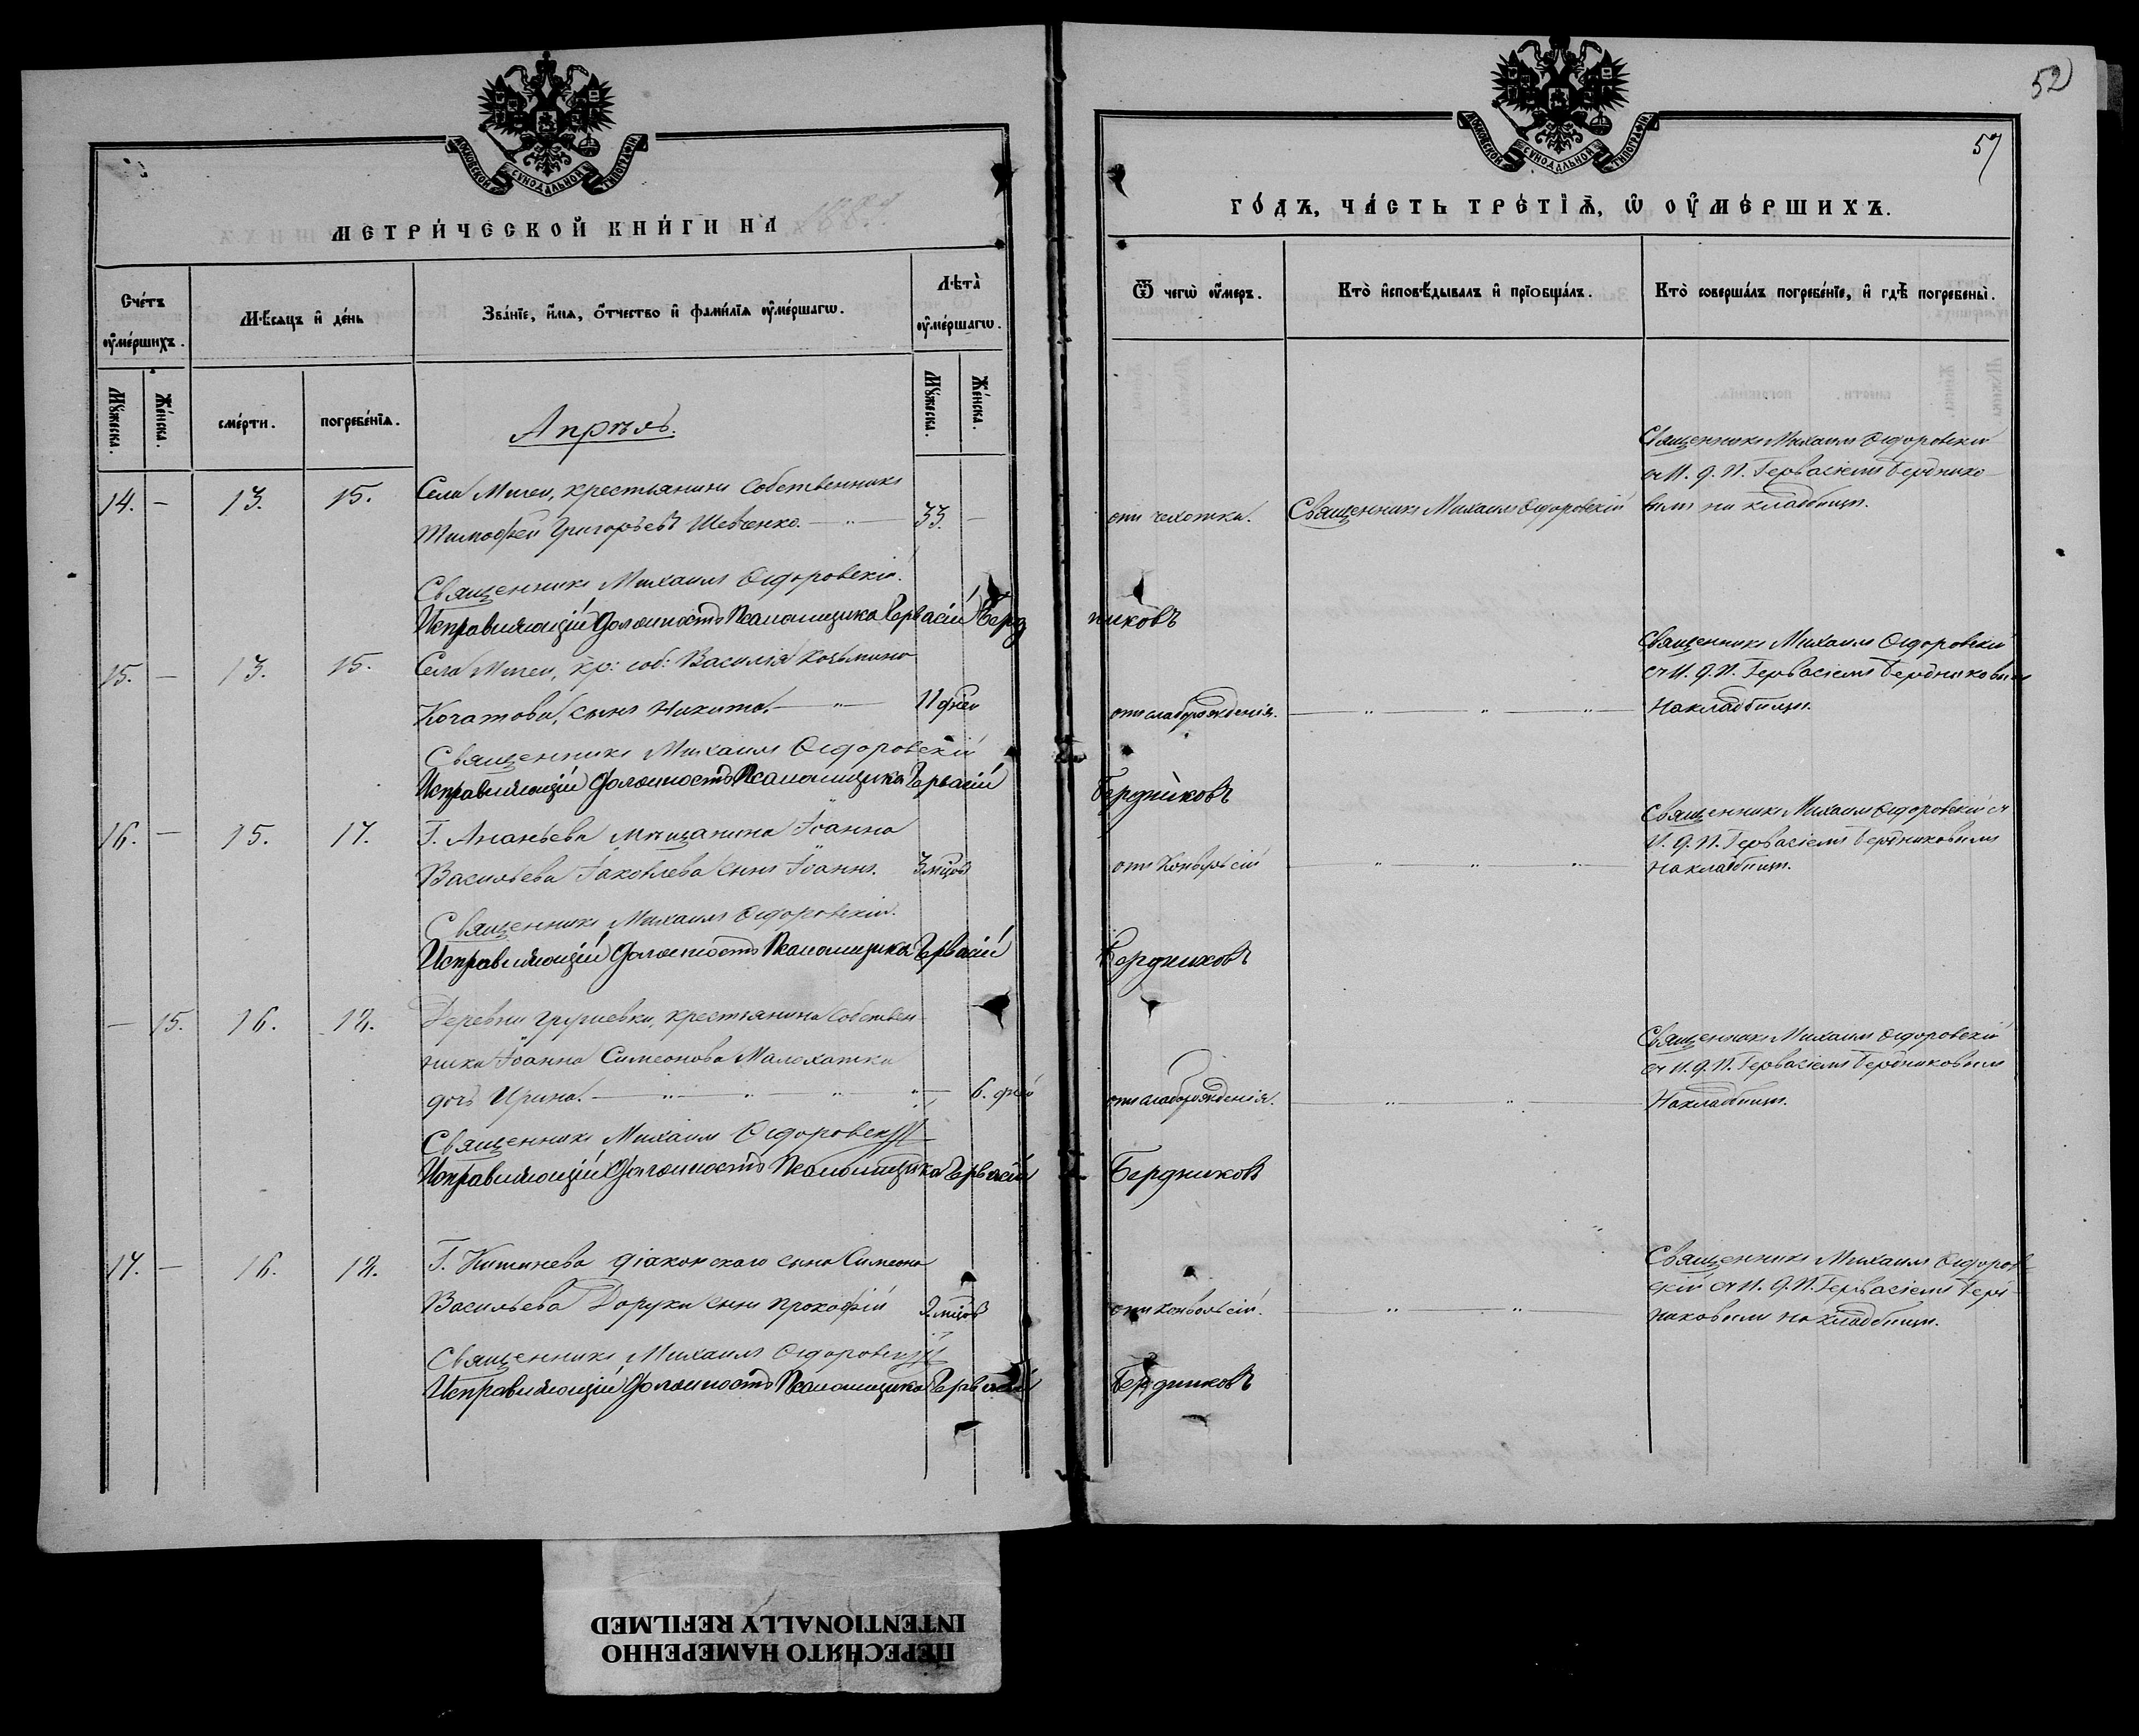 52
57
МОСКОВСКОЙ СѴНОДАЛЬНОЙ ТИПОГРАФІИ
МЕТРИ́ЧЕСКОЙ КНИ́ГИ НА
Сче́тъ ᲂу҆ме́ршихъ.
Мꙋ́жеска.
Же́нска.
Мѣ́сѧцъ и҆ де́нь
сме́рти.
погребе́нїѧ.
Зва́нїе, и҆́мѧ, ѻ҆́тчество и҆ фами́лїѧ ᲂу҆ме́ршагѡ.
Лѣта̀ ᲂу҆ме́ршагѡ.
Мꙋ́жеска.
Же́нска.
Апрѣль.
14. — 13. 15. Села Мигеи, крестьянинъ собственникъ
Тимофей Григорьевъ Шевченко. — 33. —
Священникъ Михаилъ Сидоровскій.
Исправляющій должность Псаломщика Гервасій Бердниковъ
15. — 13. 15. Села Мигеи, кр: соб: Василія Козьмина
Кочатова, сынъ Никита. — 11 дней
Священникъ Михаилъ Сидоровскій
Исправляющій должность Псаломщика Гервасій Бердниковъ
16. — 15. 17. Г. Ананьева мѣщанина Іоанна
Васильева Іаковлева сынъ Іоаннъ. 3 мѣцов
Священникъ Михаилъ Сидоровскій.
Исправляющій должность Псаломщика Гервасій Бердниковъ
— 15. 16. 18. Деревни Грушевки, крестьянина собствен-
ника Іоанна Симеонова Малохатка
дочь Ирина. — 6. дней
Священникъ Михаилъ Сидоровскій
Исправляющій должность Псаломщика Гервасій Бердниковъ
17. — 16. 18. Г. Кишинева діаконскаго сына Симеона
Васильева Доруки сынъ Прокофій 2 мѣцов
Священникъ Михаилъ Сидоровскій
Исправляющій должность Псаломщика Гервасій Бердниковъ
МОСКОВСКОЙ СѴНОДАЛЬНОЙ ТИПОГРАФІИ
ГО́ДЪ, ЧА́СТЬ ТРЕ́ТЇѦ, Ѡ҆ ОУ҆МЕ́РШИХЪ.
Ѿ чегѡ̀ ᲂу҆́меръ.
Кто̀ и҆сповѣ́дывалъ и҆ прїѡбща́лъ.
Кто̀ соверша́лъ погребе́нїе, и҆ гдѣ̀ погребены̀.
отъ чахотки.
Священникъ Михаилъ Сидоровскій
Священникъ Михаилъ Сидоровскій
съ И. д. П. Гервасіемъ Берднико-
вымъ на кладбищѣ.
отъ слаборожденія.
Священникъ Михаилъ Сидоровскій
съ И. д. П. Гервасіемъ Бердниковымъ
На кладбищѣ.
отъ конвульсій
Священникъ Михаилъ Сидоровскій съ
И. д. П. Гервасіемъ Бердниковымъ
На кладбищѣ.
отъ слаборожденія.
Священникъ Михаилъ Сидоровскій
съ И. д. П. Гервасіемъ Бердниковымъ
На кладбищѣ.
отъ конвульсій.
Священникъ Михаилъ Сидоров-
скій съ И. д. П. Гервасіемъ Берд-
никовымъ на кладбищѣ.
INTENTIONALLY REFILMED
ПЕРЕСНЯТО НАМЕРЕННО